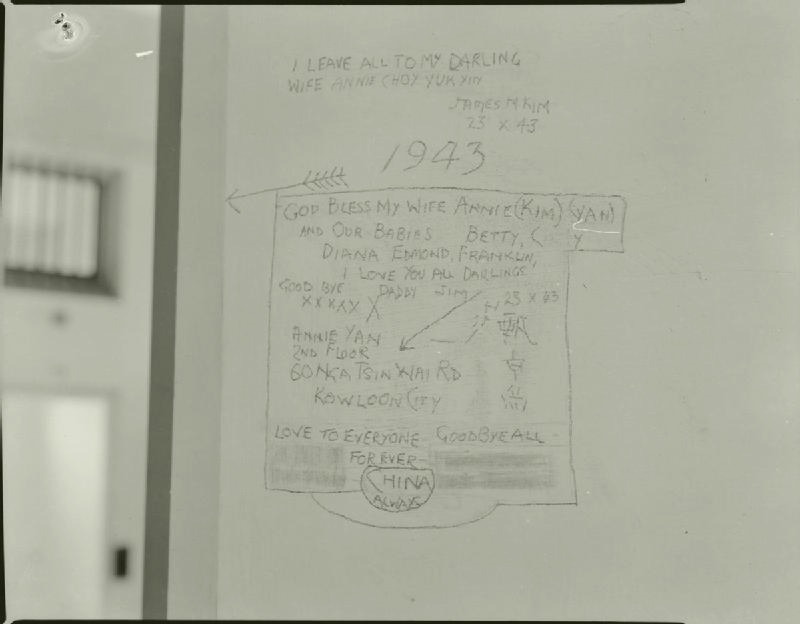 I LEAVE ALL TO MY DARLING
WIFE ANNIE CHOY YUK YIN
JAMES M KIM
23 X 43
1943
GOD BLESS MY WIFE ANNIE (KIM) (YAN)
AND OUR BABIES BETTY, ( Y
DIANA EDMOND, FRANKLIN,
I LOVE YOU ALL DARLINGS
GOOD BYE DADDY JIM
XXXXX X
23 X 43
ANNIE YAN
2ND FLOOR
60 NGA TSIN WAI RD
KOWLOON CITY
LOVE TO EVERYONE GOODBYE ALL
FOREVER
CHINA
ALWAYS